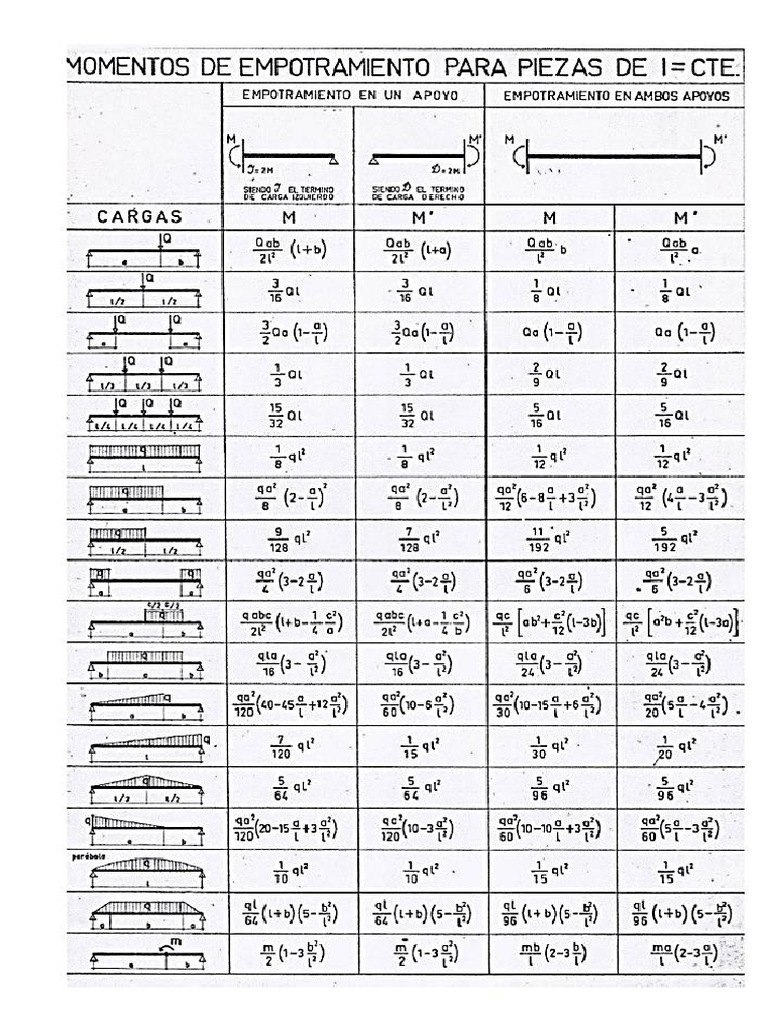 MOMENTOS DE EMPOTRAMIENTO PARA PIEZAS DE I = CTE.
EMPOTRAMIENTO EN UN APOYO
EMPOTRAMIENTO EN AMBOS APOYOS
M M' M M'
J=2M D=2M
SIENDO J EL TERMINO DE CARGA IZQUIERDO
SIENDO D EL TERMINO DE CARGA DERECHO
CARGAS M M' M M'
Q a b Qab/2l² (l+b) Qab/2l² (l+a) Qab/l² b Qab/l² a
Q l/2 l/2 3/16 Ql 3/16 Ql 1/8 Ql 1/8 Ql
Q Q a a 3/2 Qa (1-a/l) 3/2 Qa (1-a/l) Qa (1-a/l) Qa (1-a/l)
Q Q l/3 l/3 l/3 1/3 Ql 1/3 Ql 2/9 Ql 2/9 Ql
Q Q Q l/4 l/4 l/4 l/4 15/32 Ql 15/32 Ql 5/16 Ql 5/16 Ql
q l 1/8 ql² 1/8 ql² 1/12 ql² 1/12 ql²
q a b qa²/8 (2-a/l)² qa²/8 (2-a²/l²) qa²/12 (6-8a/l+3a²/l²) qa²/12 (4a/l-3a²/l²)
q l/2 l/2 9/128 ql² 7/128 ql² 11/192 ql² 5/192 ql²
q q a a qa²/4 (3-2a/l) qa²/4 (3-2a/l) qa²/6 (3-2a/l) qa²/6 (3-2a/l)
c/2 c/2 q a b qabc/2l² (l+b-1/4 c²/a) qabc/2l² (l+a-1/4 c²/b) qc/l² [ab²+c²/12 (l-3b)] qc/l² [a²b+c²/12 (l-3a)]
q b a b qla/16 (3-a²/l²) qla/16 (3-a²/l²) qla/24 (3-a²/l²) qla/24 (3-a²/l²)
q a b qa²/120 (40-45a/l+12a²/l²) qa²/60 (10-6a²/l²) qa²/30 (10-15a/l+6a²/l²) qa²/20 (5a/l-4a²/l²)
q l 7/120 ql² 1/15 ql² 1/30 ql² 1/20 ql²
q l/2 l/2 5/64 ql² 5/64 ql² 5/96 ql² 5/96 ql²
q a b qa²/120 (20-15a/l+3a²/l²) qa²/120 (10-3a²/l²) qa²/60 (10-10a/l+3a²/l²) qa²/60 (5a/l-3a²/l²)
parábola q l 1/10 ql² 1/10 ql² 1/15 ql² 1/15 ql²
q a b a ql/64 (l+b) (5-b²/l²) ql/64 (l+b) (5-b²/l²) ql/96 (l+b) (5-b²/l²) ql/96 (l+b) (5-b²/l²)
m a b m/2 (1-3b²/l²) m/2 (1-3a²/l²) mb/l (2-3b/l) ma/l (2-3a/l)